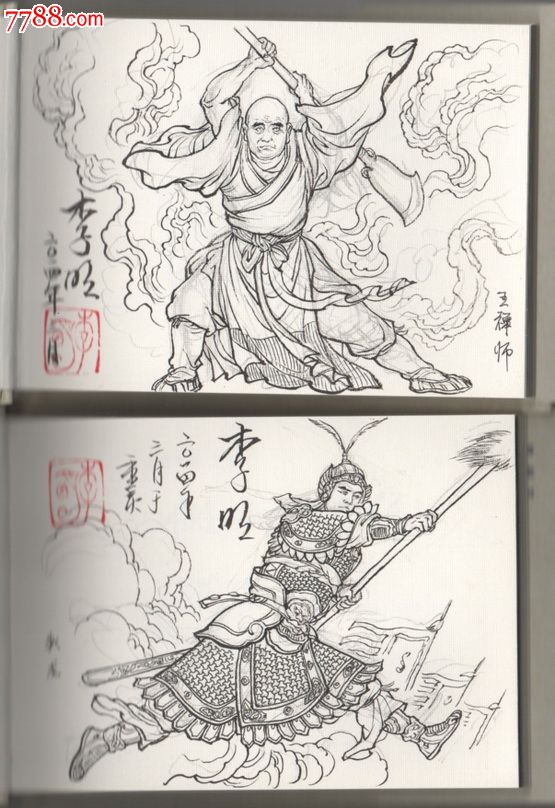 7788.com
李明
二〇一四年
王禪师
李明
二〇一四年
二月于
重庆